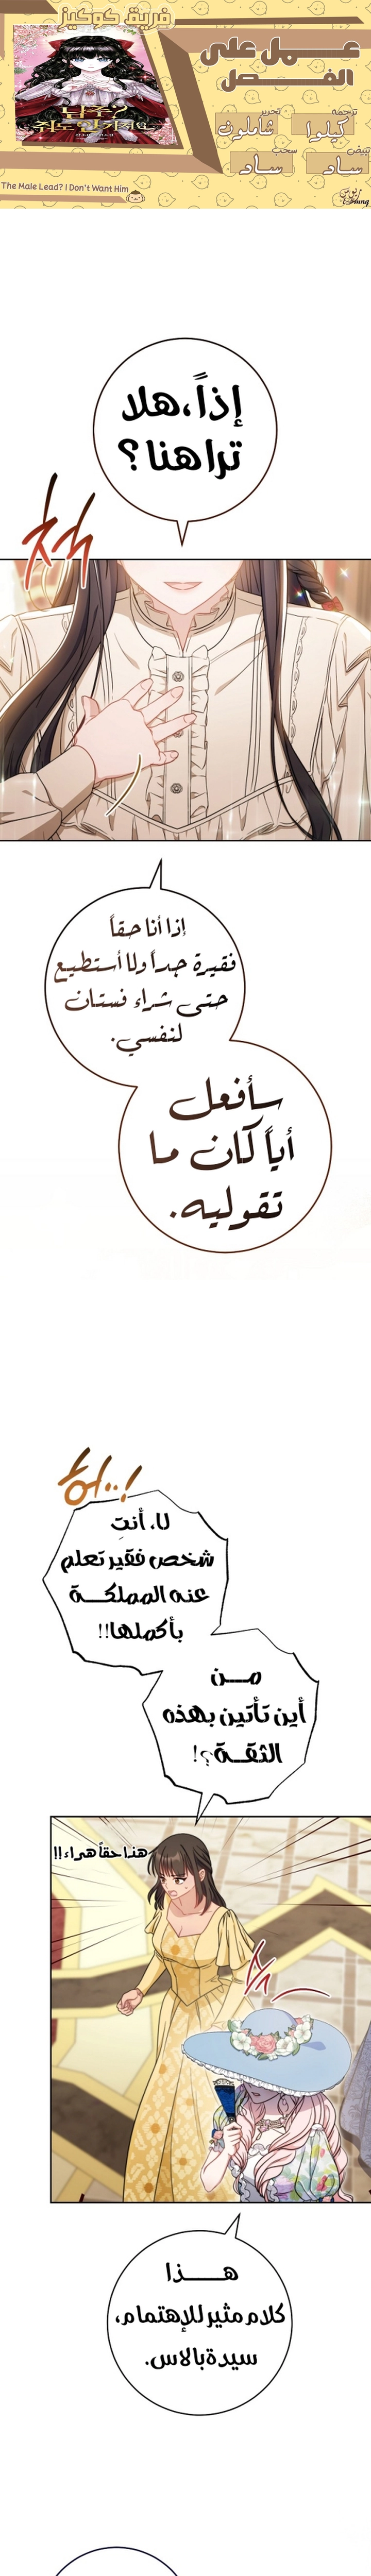 فريق كوكيز
عمل على
الفصل
ترجمة
تحرير
كيلوا
شاملون
تبيض
سحب
ساد
ساد
The Male Lead? I Don't Want Him
إذاً، هلا
تراهنا؟
척
إذا أنا حقاً
فقيرة جداً ولا أستطيع
حتى شراء فستان
لنفسي.
سأفعل
أياً كان ما
تقوليه.
허..!
لا، أنتِ
شخص فقير تعلم
عنه المملكة
بأكملها!!
من
أين تأتين بهذه
الثقة؟!
هذا حقاً هراء!!
هذا
كلام مثير للإهتمام،
سيدة بالاس.